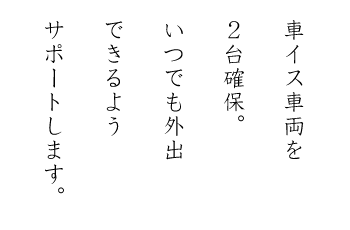 車イス車両を
２台確保。
いつでも外出
できるよう
サポートします。